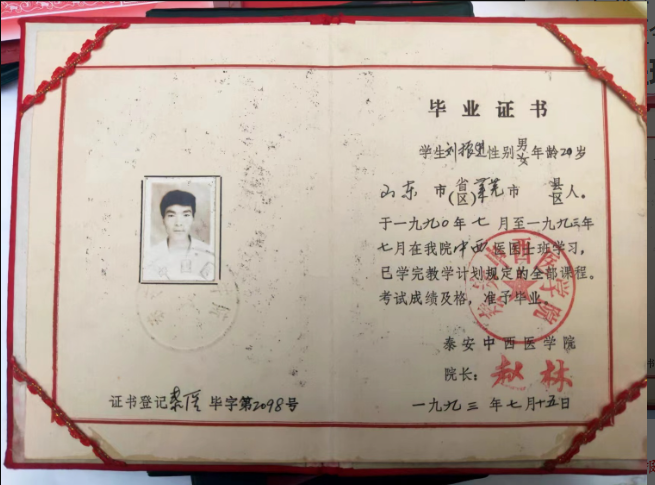 毕业证书
学生刘振性别男女年龄20岁
山东市省(区)莱芜市县区人。
于一九九〇年七月至一九九三年
七月在我院中西医医士班学习，
已学完教学计划规定的全部课程。
考试成绩及格，准予毕业。
泰安中西医学院
院长：
林
一九九三年七月十五日
证书登记泰医毕字第2098号